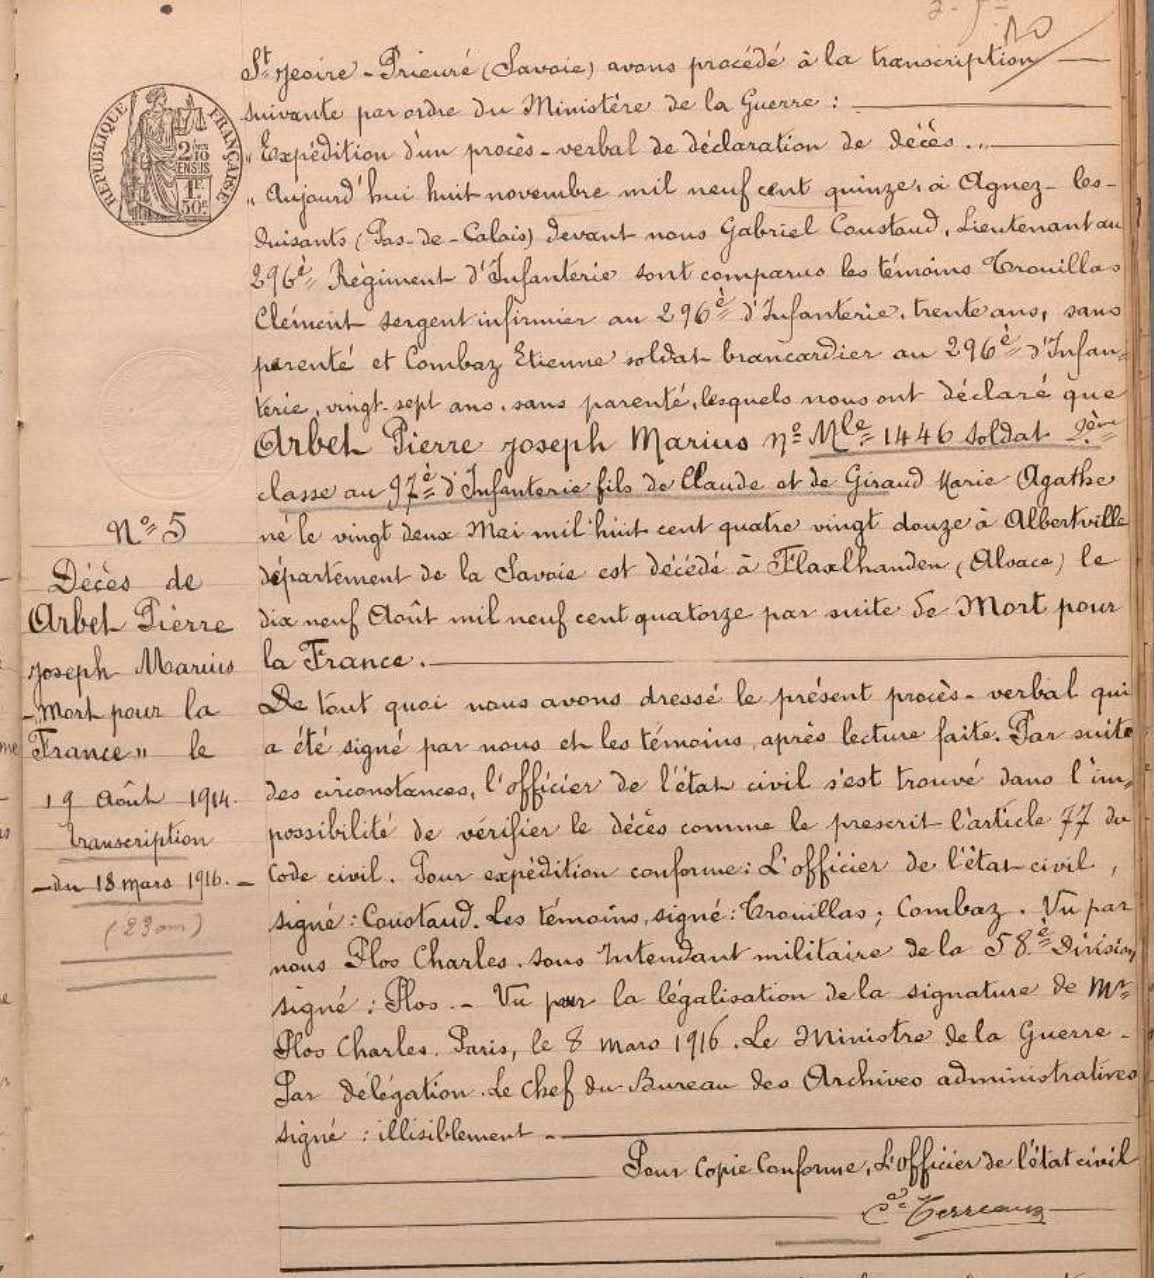 St Jeoire - Prieuré (Savoie) avons procédé à la transcription
suivante par ordre du Ministère de la Guerre :
"Expédition d'un procès-verbal de déclaration de décès...
"Aujourd'hui huit novembre mil neuf cent quinze, à Agnez-les-
Duisants (Pas-de-Calais) devant nous Gabriel Coustaud, Lieutenant au
296è Régiment d'Infanterie sont comparus les témoins Trouillas
Clément sergent infirmier au 296è d'Infanterie, trente ans, sans
parenté et Combaz Etienne soldat brancardier au 296è d'Infan-
terie, vingt-sept ans, sans parenté, lesquels nous ont déclaré que
Arbet Pierre Joseph Marius No Mle 1446 soldat 2ème
classe au 97è d'Infanterie fils de Claude et de Giraud Marie Agathe
né le vingt deux Mai mil huit cent quatre vingt douze à Albertville
département de la Savoie est décédé à Flaxlhanden (Alsace) le
dix neuf Août mil neuf cent quatorze par suite de Mort pour
la France.
De tout quoi nous avons dressé le présent procès-verbal qui
a été signé par nous et les témoins, après lecture faite. Par suite
des circonstances, l'officier de l'état civil s'est trouvé dans l'im-
possibilité de vérifier le décès comme le prescrit l'article 77 du
Code civil. Pour expédition conforme : L'officier de l'état civil,
signé : Coustaud. Les témoins, signé : Trouillas ; Combaz. Vu par
nous Plos Charles. sous Intendant militaire de la 58è Division,
signé : Plos. - Vu pour la légalisation de la signature de Mr
Plos Charles. Paris, le 8 mars 1916. Le Ministre de la Guerre -
Par délégation. Le Chef du Bureau des Archives administratives
signé : illisiblement -
Pour Copie Conforme, L'officier de l'état civil
REPUBLIQUE FRANÇAISE
2/10
EN SUS
1F
50c
No 5
Décès de
Arbet Pierre
Joseph Marius
- Mort pour la
France" le
19 Août 1914.
transcription
- du 18 mars 1916. -
(23 ans)